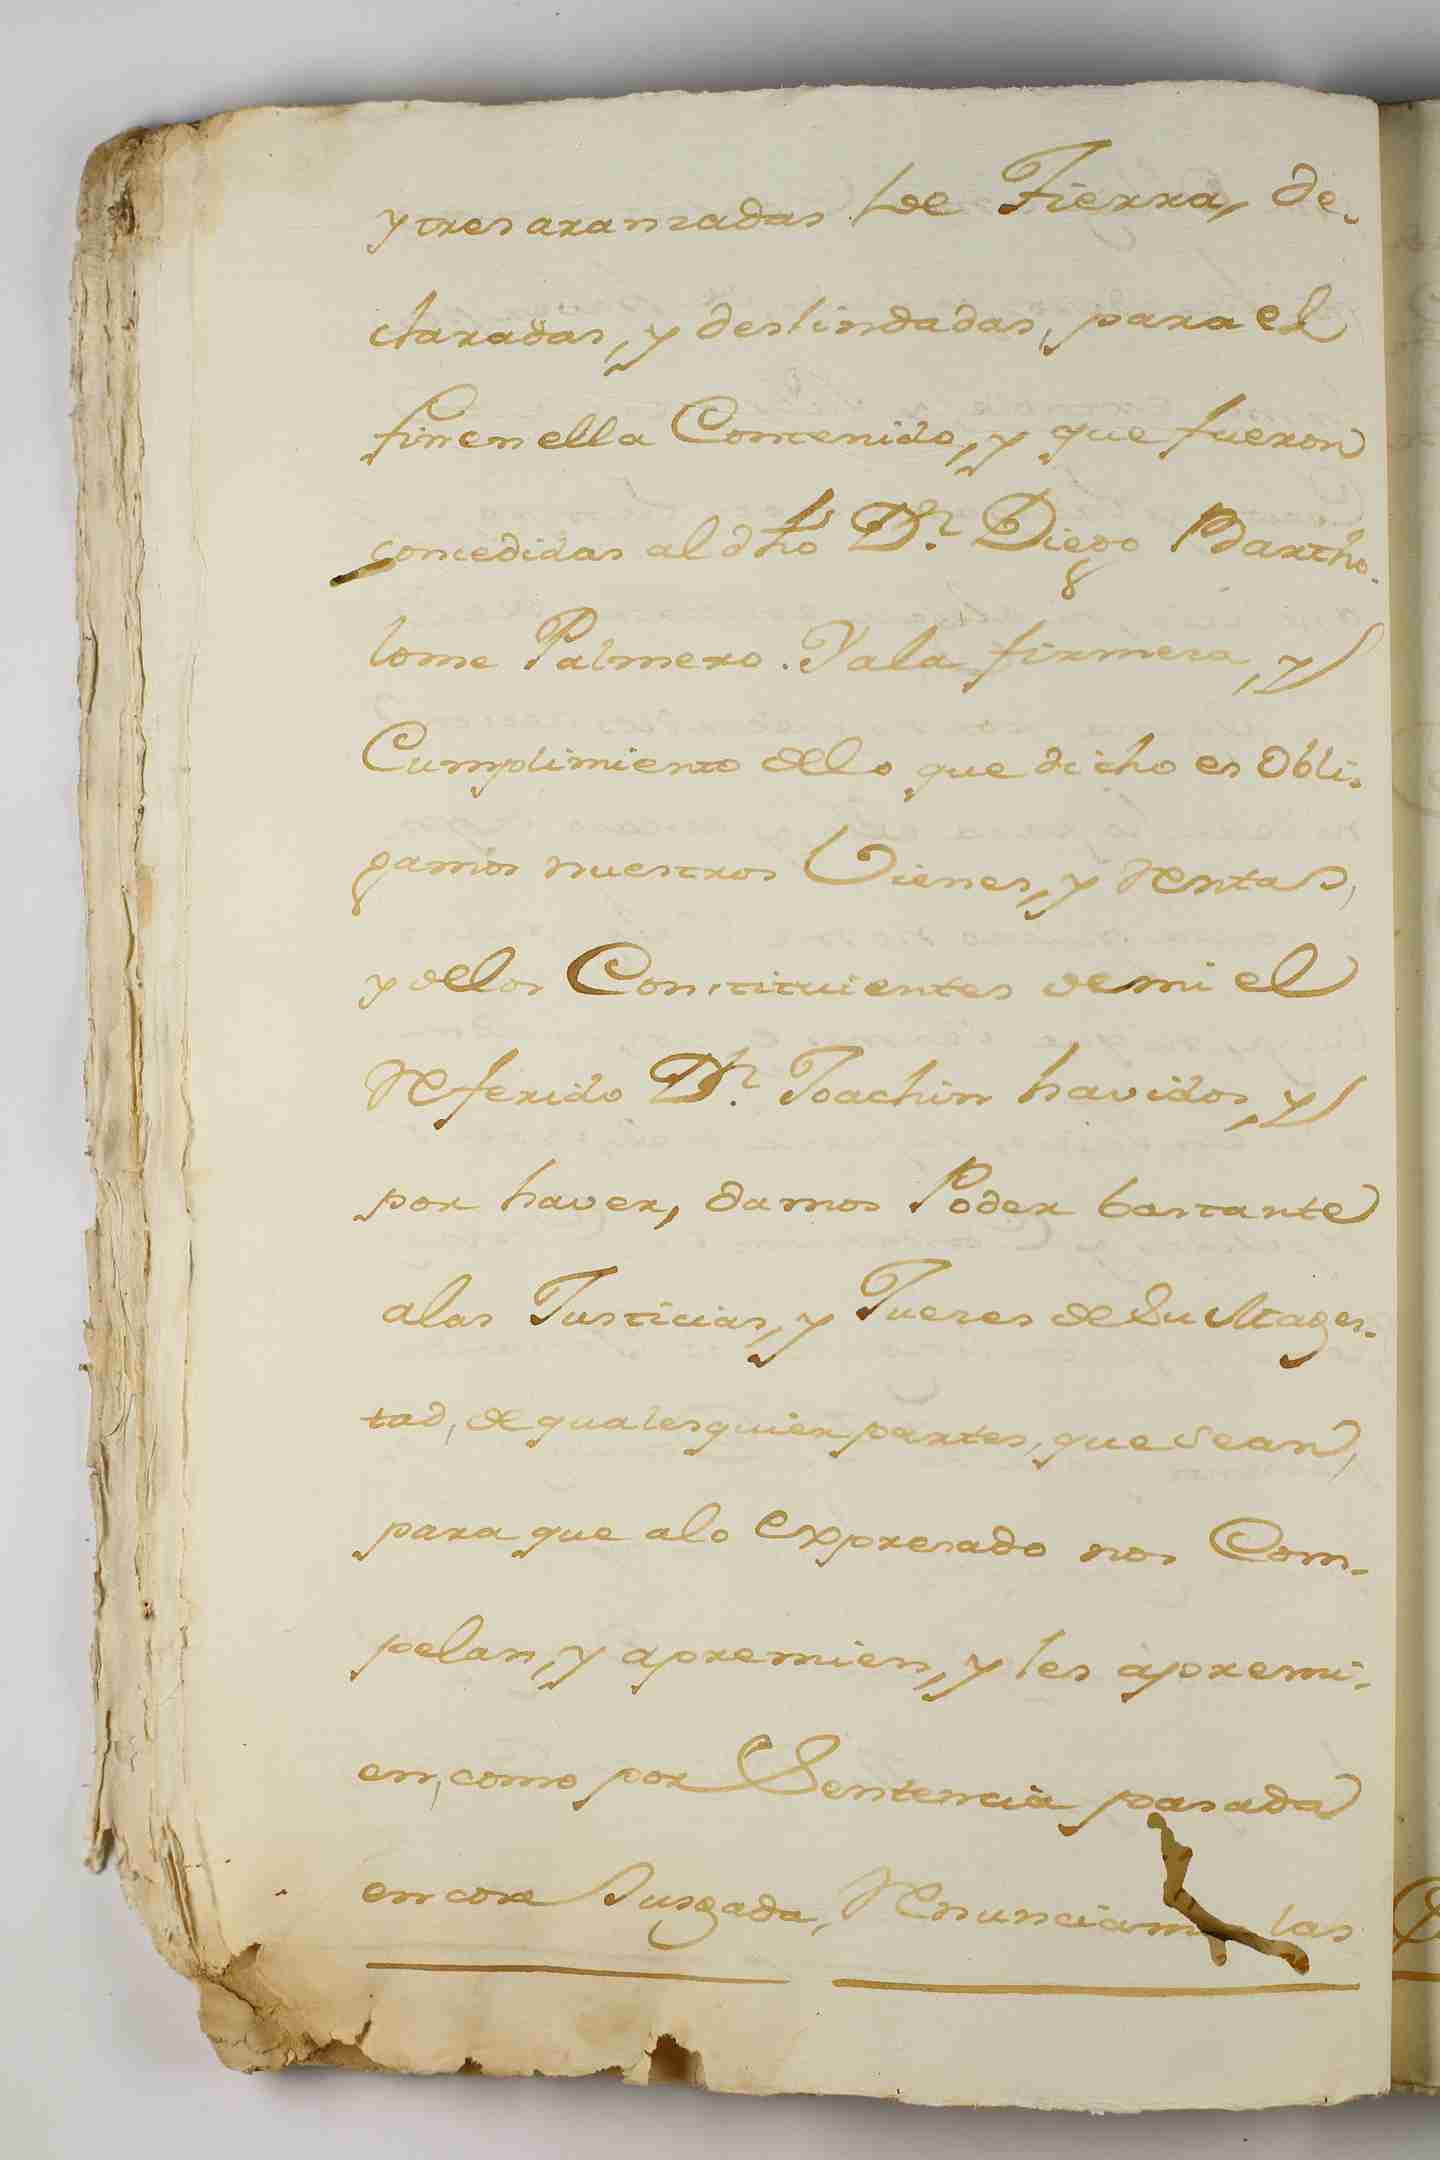 y tres aranzadas de Tierra, de-
claradas, y deslindadas, para el
fin en ella Contenido, y que fueron
concedidas al dho Dn. Diego Bartho-
lome Palmero. Y a la firmeza, y
Cumplimiento dello que dicho es Obli-
gamos nuestros Vienes, y Rentas,
y de los Constituientes de mi el
Referido Dn. Joachin havidos, y
por haver, damos Poder bastante
a las Justicias, y Jueces de Su Mages-
tad, de qualesquier partes, que sean,
para que a lo expresado nos Com-
pelan, y apremien, y les apremi-
en, como por Sentencia pasada
en cosa Jusgada, Renunciamos las